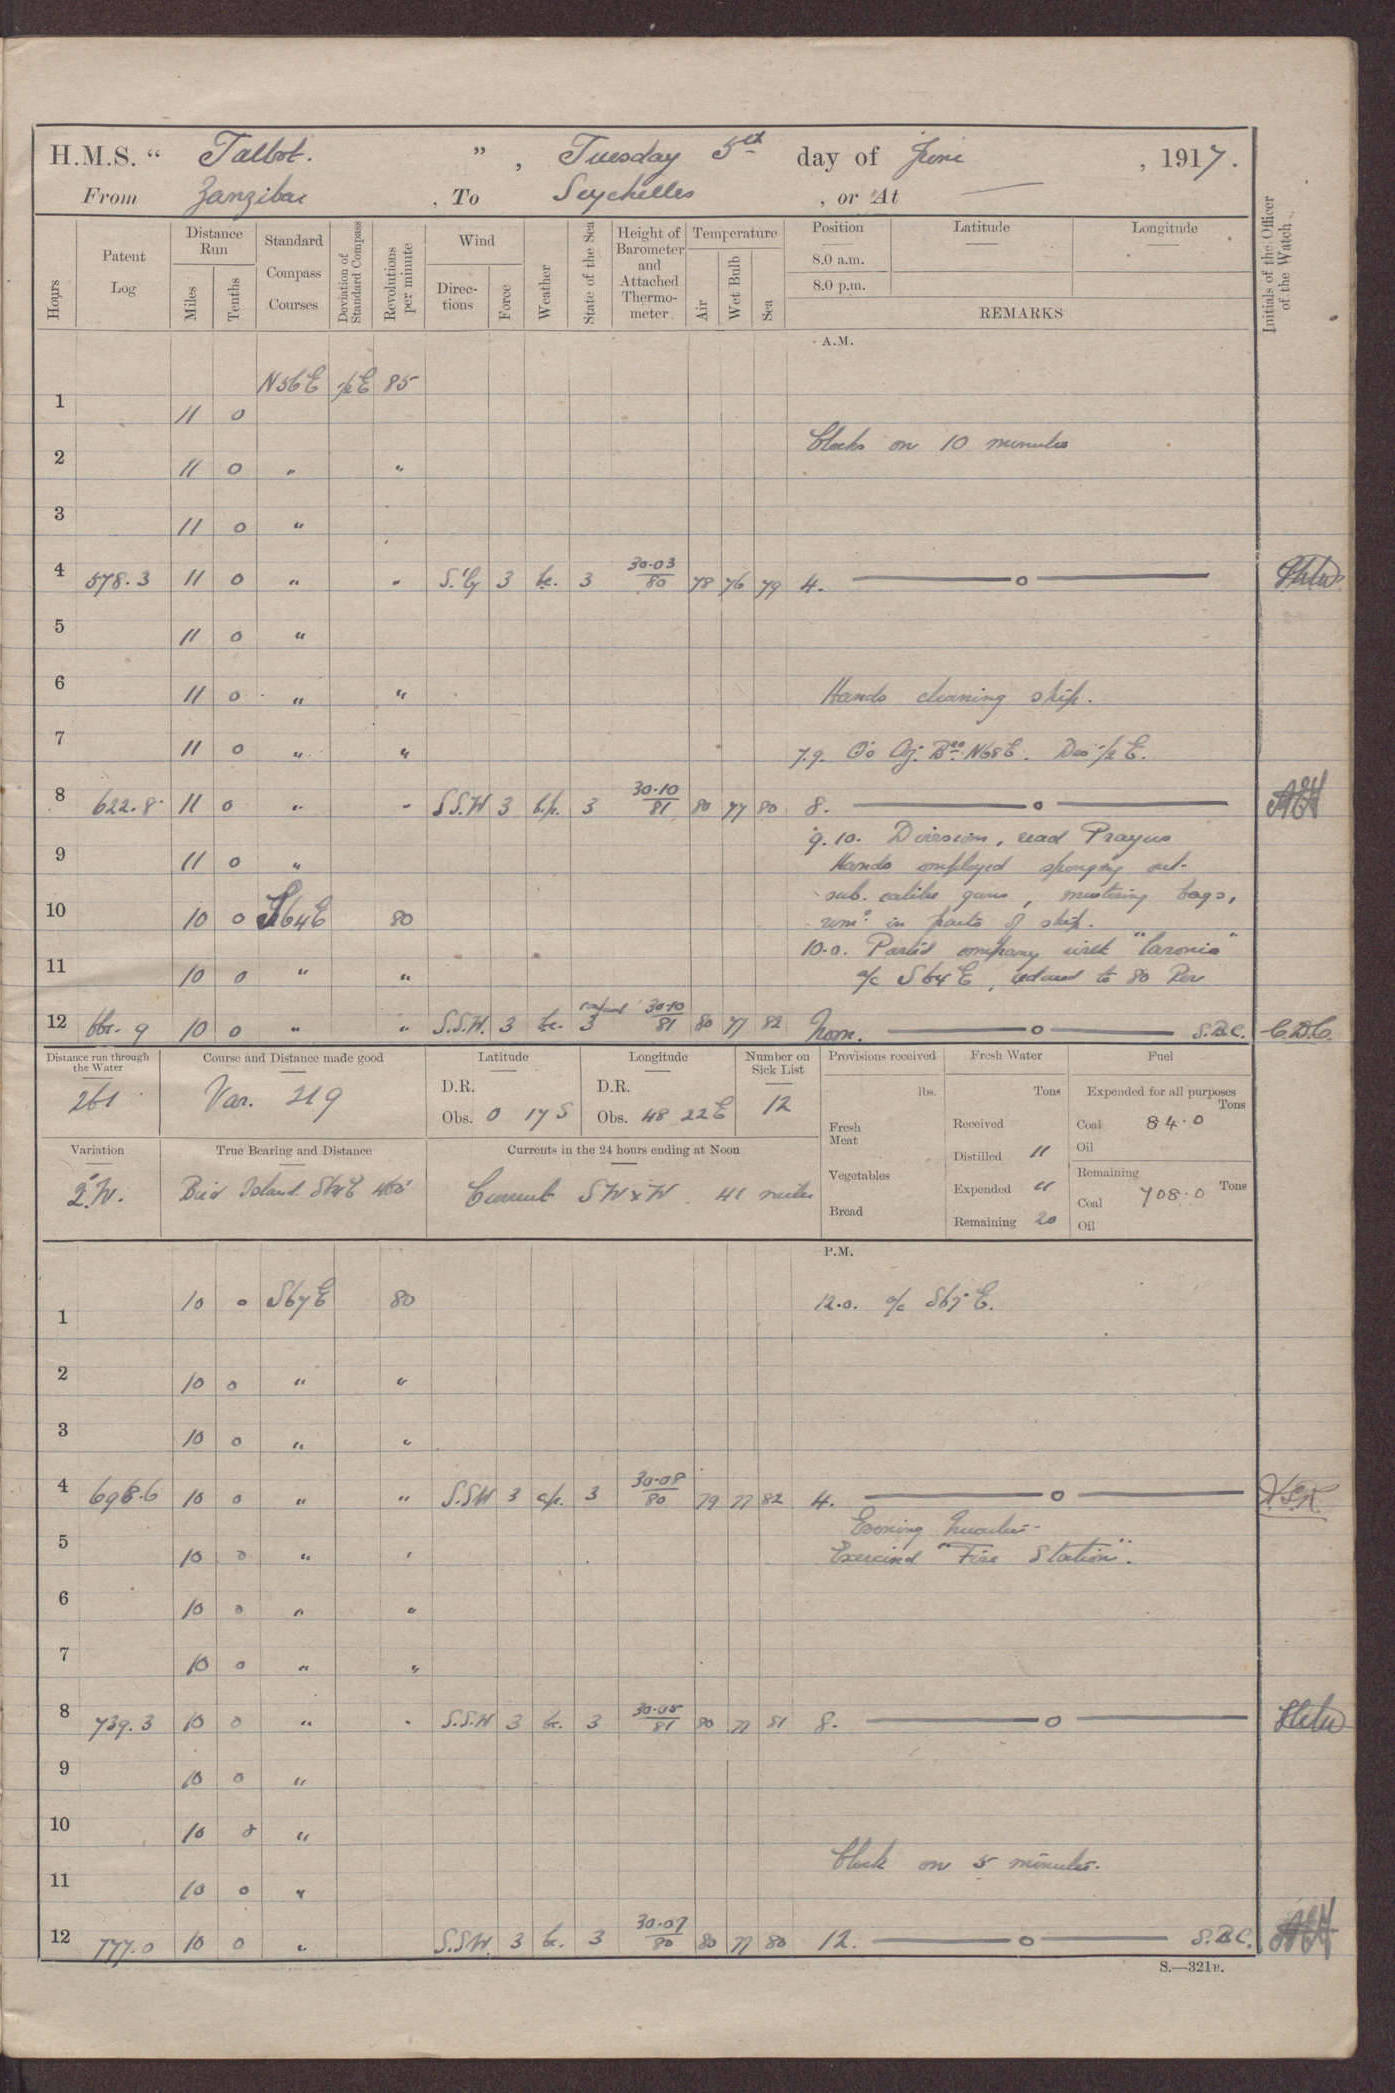 H.M.S. " Talbot. ", Tuesday 5th day of June, 1917.
From Zanzibar, To Seychelles, or At —
Hours
Patent Log
Distance Run
Miles
Tenths
Standard Compass Courses
Deviation of Standard Compass
Revolutions per minute
Wind
Directions
Force
Weather
State of the Sea
Height of Barometer and Attached Thermometer
Temperature
Air
Wet Bulb
Sea
Position Latitude Longitude
8.0 a.m.
8.0 p.m.
REMARKS
Initials of the Officer of the Watch
A.M.
N56E ½E 85
1 11 0
Clocks on 10 minutes
2 11 0 " "
3 11 0 "
4 578.3 11 0 " " S.'ly 3 bc. 3 30.03 80 78 76 79 4. —o—
5 11 0 "
6 11 0 " " Hands cleaning ship.
7 11 0 " " 7.9. N68E. Dev ½ E.
8 622.8 11 0 " " S.S.W 3 b.p. 3 30.10 81 80 77 80 8. —o— AEH
9.10. Division, read Prayers
9 11 0 " Hands employed sponging out
sub. calibre guns, mustering bags,
10 10 0 S64E 80 in parts of ship.
10.0. Parted company with "Caronia"
11 10 0 " " a/c S64E, reduced to 80 Rev
12 661.9 10 0 " " S.S.W. 3 bc. 3 30.10 81 80 77 82 Noon. —o— S.B.C. C.D.C.
Distance run through the Water
261
Course and Distance made good
Var. 219
Latitude
D.R.
Obs. 0 17 S
Longitude
D.R.
Obs. 48 22E
Number on Sick List
12
Provisions received
lbs.
Fresh Meat
Vegetables
Bread
Fresh Water
Tons
Received
Distilled 11
Expended 11
Remaining 20
Fuel
Expended for all purposes
Tons
Coal 84.0
Oil
Remaining
Tons
Coal 708.0
Oil
Variation
2°W.
True Bearing and Distance
Bird Island
Currents in the 24 hours ending at Noon
Current SW x W. 41 miles
P.M.
1 10 0 S67E 80 12.0. a/c S67E.
2 10 0 " "
3 10 0 " "
4 698.6 10 0 " " S.SW 3 c.p. 3 30.08 80 79 77 82 4. —o—
Evening Quarters
5 10 0 " " Exercised "Fire Station".
6 10 0 " "
7 10 0 " "
8 739.3 10 0 " " S.S.W 3 bc. 3 30.05 81 80 77 81 8. —o—
9 10 0 "
10 10 0 "
Clock on 5 minutes.
11 10 0 "
12 777.0 10 0 " S.SW. 3 bc. 3 30.07 80 80 77 80 12. —o— S.B.C. AEH
S.—321B.